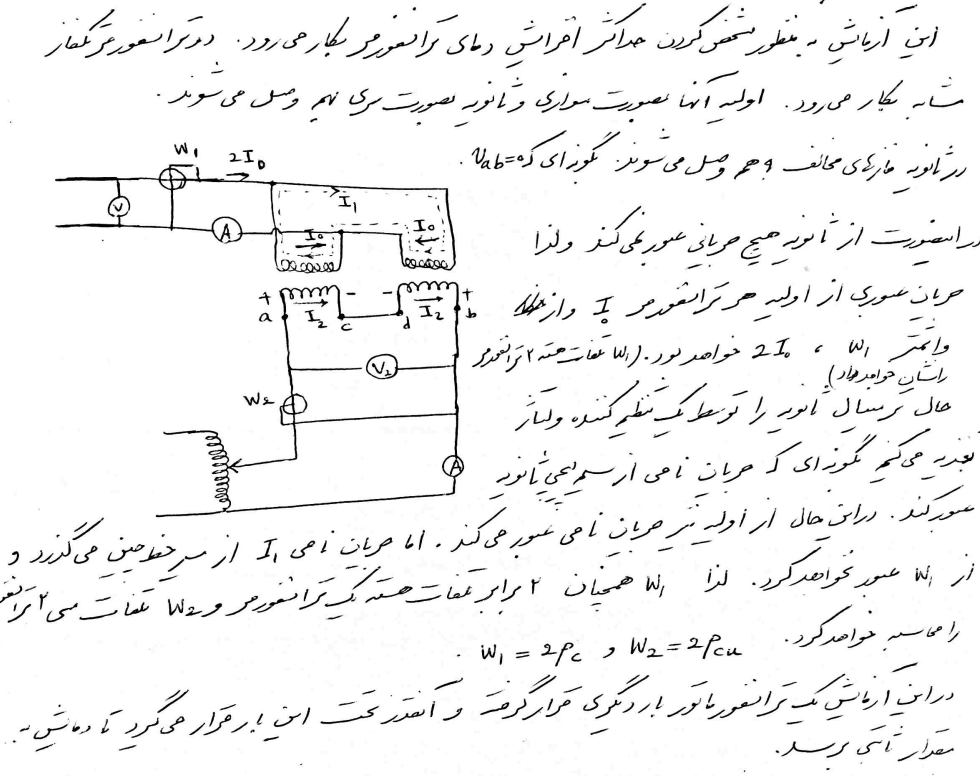 این آزمایش به منظور مشخص کردن حداکثر افزایش دمای ترانسفورمر بکار می‌رود. دو ترانسفورمر تکفاز
مشابه بکار می‌رود. اولیه آنها بصورت موازی و ثانویه بصورت سری بهم وصل می‌شوند.
در ثانویه فازهای مخالف بهم وصل می‌شوند. بگونه‌ای که Vab=0.
در اینصورت از ثانویه هیچ جریانی عبور نمی‌کند ولذا
جریان عبوری از اولیه هر ترانسفورمر I0 و از
واتمتر W1 ، 2I0 خواهد بود. (W1 تلفات هسته ۲ ترانسفورمر
را نشان خواهد داد)
حال ترمینال ثانویه را توسط یک تنظیم کننده ولتاژ
تغذیه می‌کنیم بگونه‌ای که جریان نامی از سیم پیچی ثانویه
عبور کند. در این حال از اولیه نیز جریان نامی عبور می‌کند. اما جریان نامی I1 از مسیر خط چین می‌گذرد و
از W1 عبور نخواهد کرد. لذا W1 همچنان ۲ برابر تلفات هسته یک ترانسفورمر و W2 تلفات مسی ۲ ترانسفو
را محاسبه خواهد کرد. W1 = 2Pc و W2 = 2Pcu .
در این آزمایش یک ترانسفورماتور بار دیگری قرار گرفته و آنقدر تحت این بار قرار می‌گیرد تا دمایش به
مقدار ثابتی برسد.
W1
2I0
V
A
I1
I0
I0
+
-
-
+
a
I2
c
d
I2
b
V2
W2
A